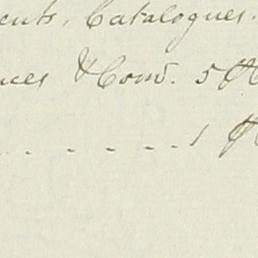 ents, Catalogues.
ues & Cond. 5
. . . . . . 1